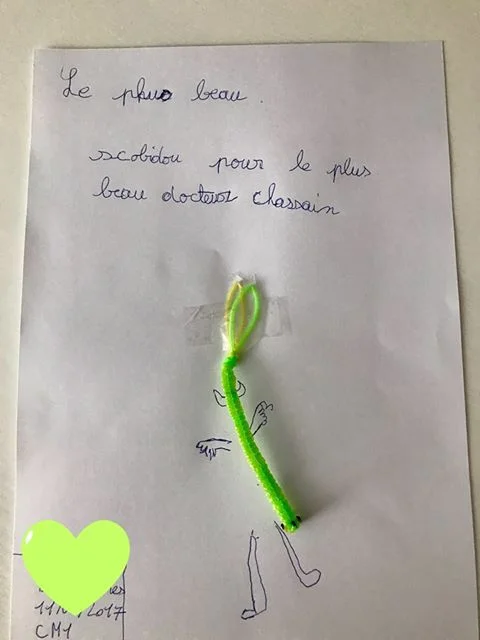 Le plus beau.
scobidou pour le plus
beau docteur chassain
2017
CM1